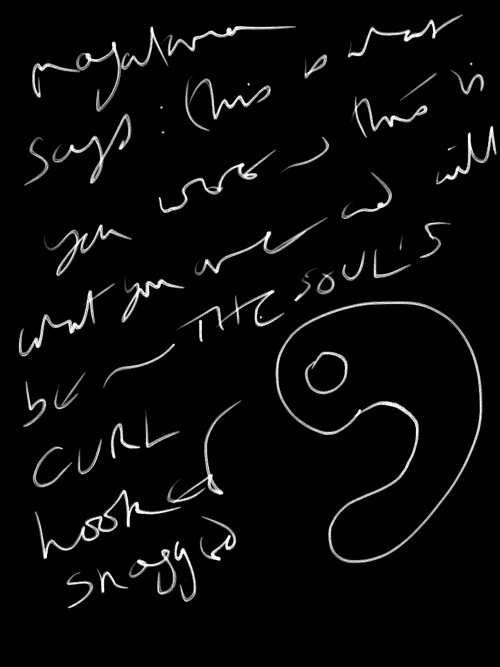 magatama
says: this is what
you were ~ this is
what you are and will
be ~ THE SOUL'S
CURL
hooked
snagged